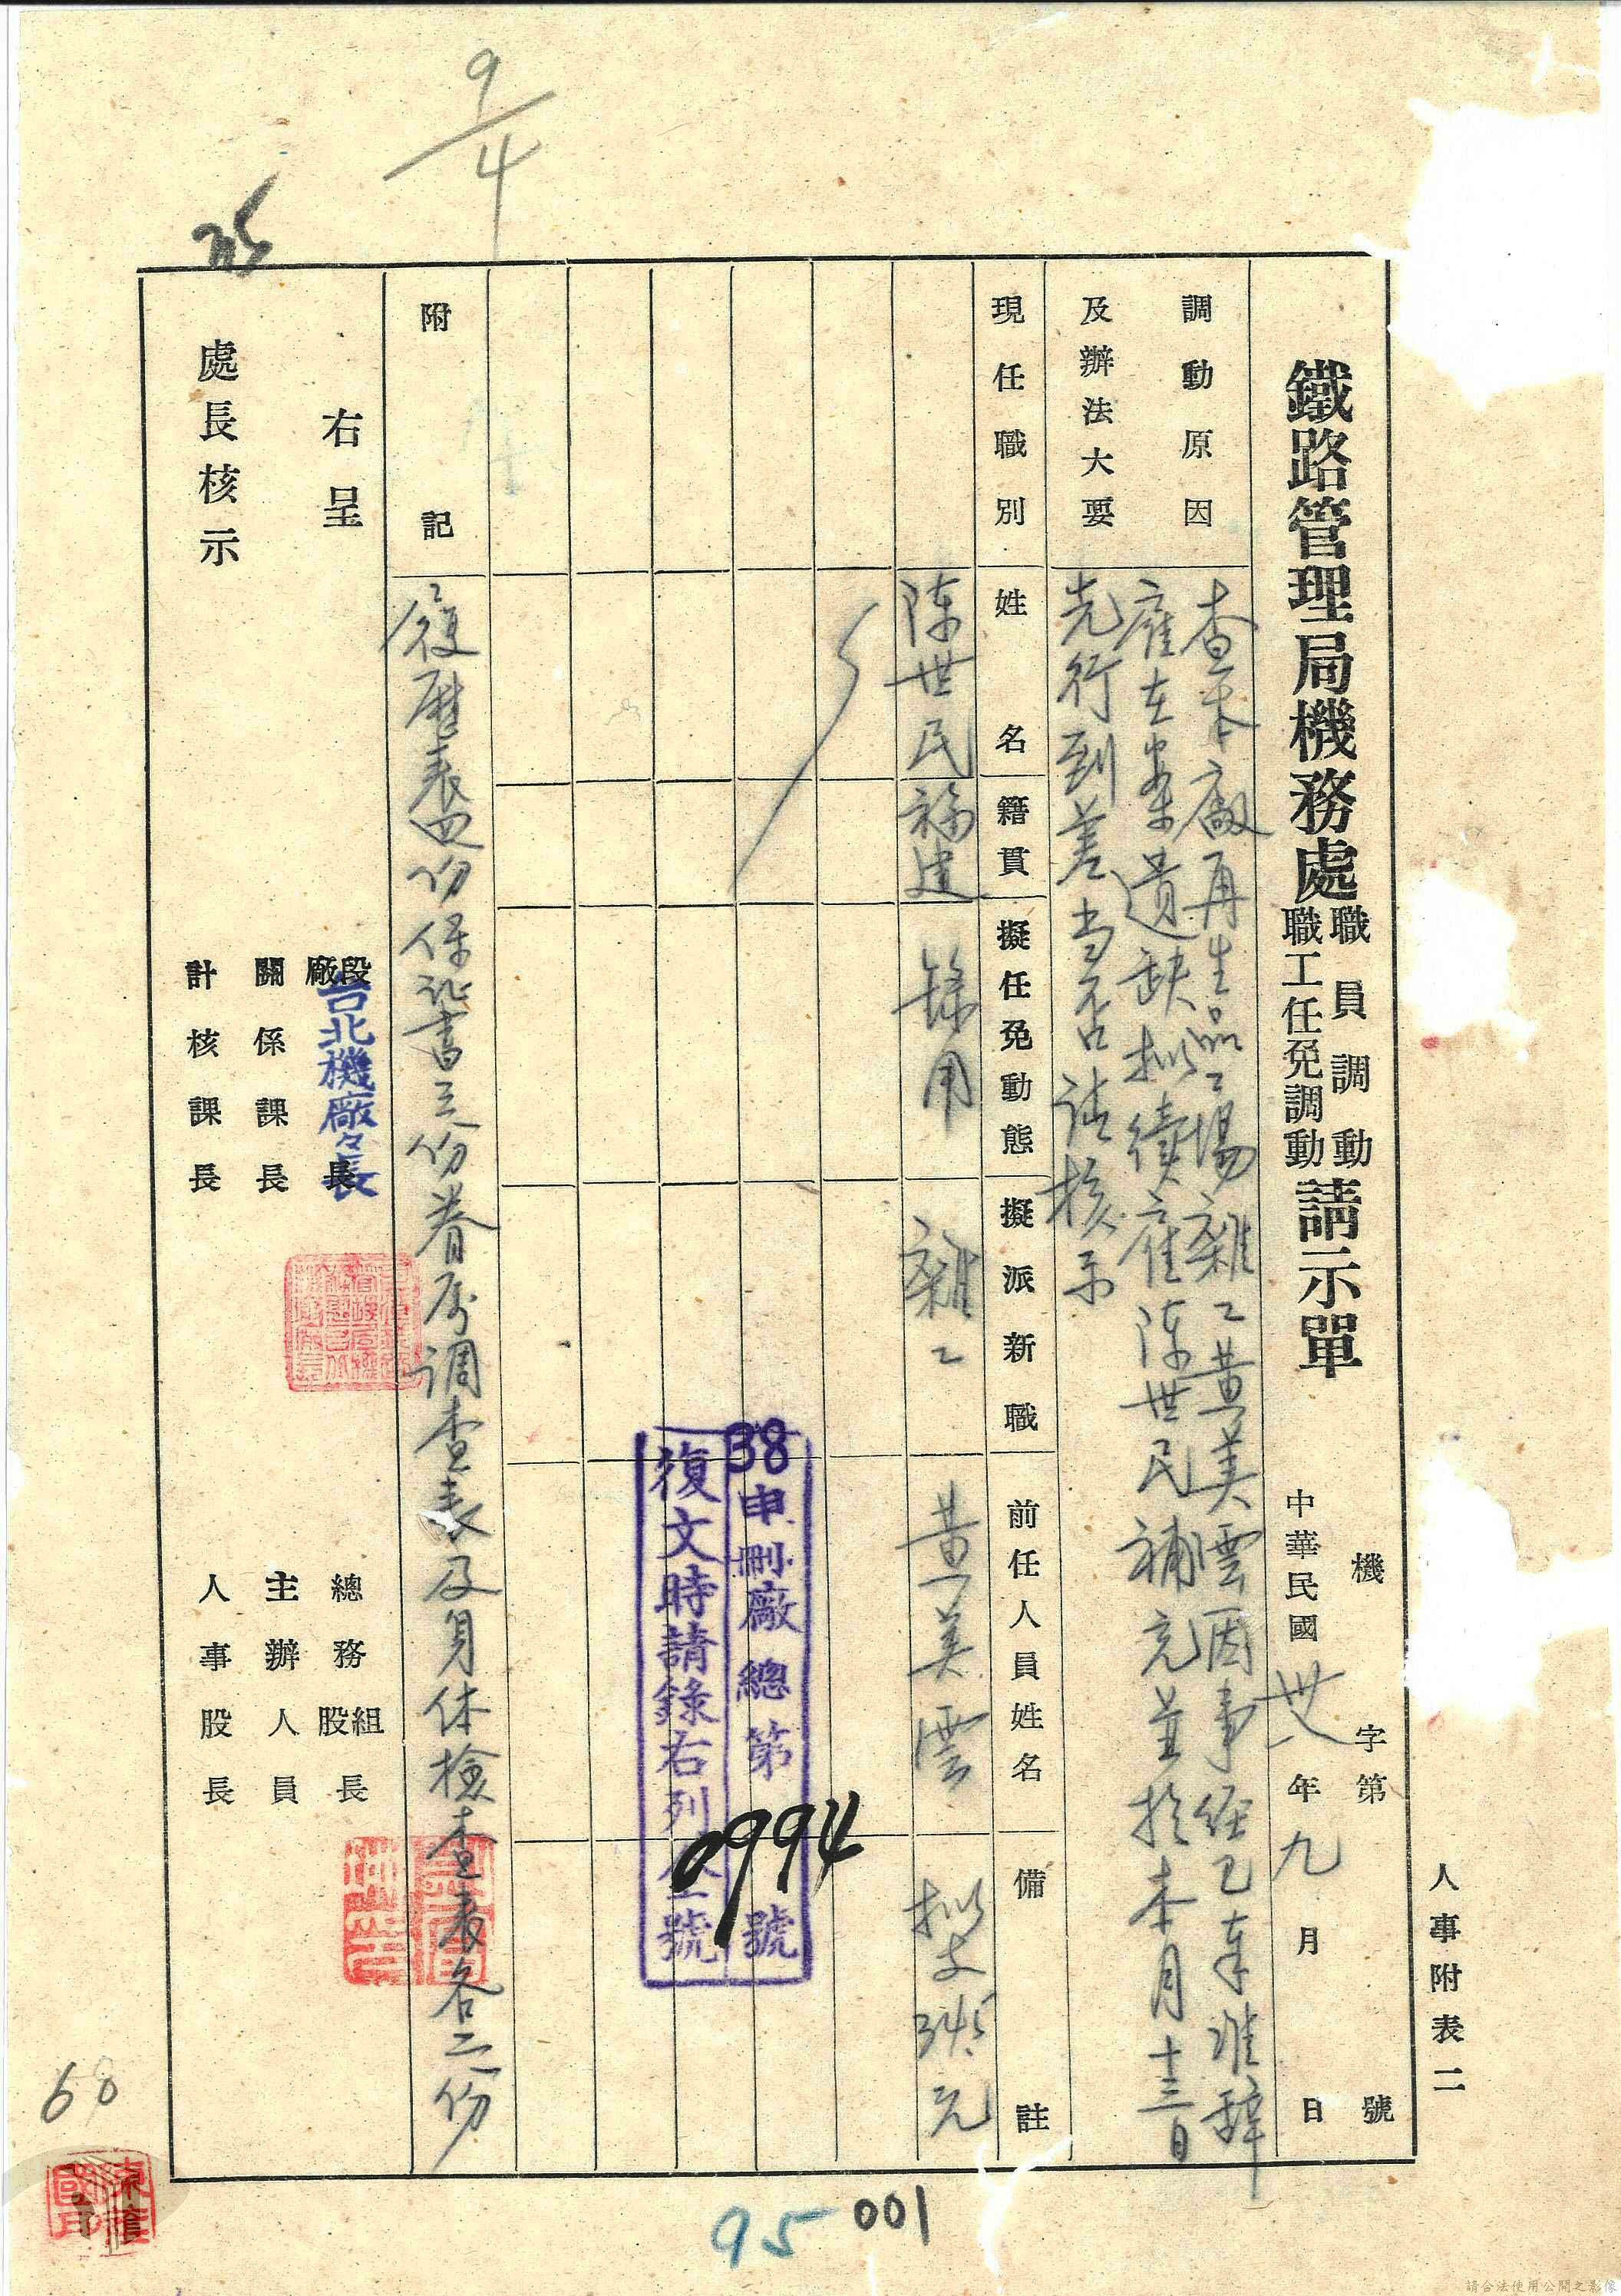 人事附表二
機 字第 號
鐵路管理局機務處職員調動職工任免調動請示單
中華民國卅八年九月 日
調動原因
及辦法大要
查本廠再生品工場雜工黃美雲因事經已奉准辭
雇在案遺缺擬續雇陳世民補充並於本月十三日
先行到差当否請核示
現任職別
姓名
籍貫
擬任免動態
擬派新職
前任人員姓名
備註
陳世民
福建
錄用
雜工
黃美雲
擬支345元
38申刪廠總第 號
0994
復文時請錄右列 號
附記
履歷表四份保証書三份眷属調查表及身体檢查表各二份
右呈
處長核示
廠段長
台北機廠々長
關係課長
計核課長
總務股組長
主辦人員
人事股長
9/4
68
95
001
請合法使用公開之影像